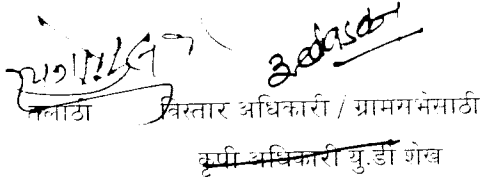 तलाठी विस्तार अधिकारी / ग्रामसभेसाठी
कृषी अधिकारी यु.डी शेख